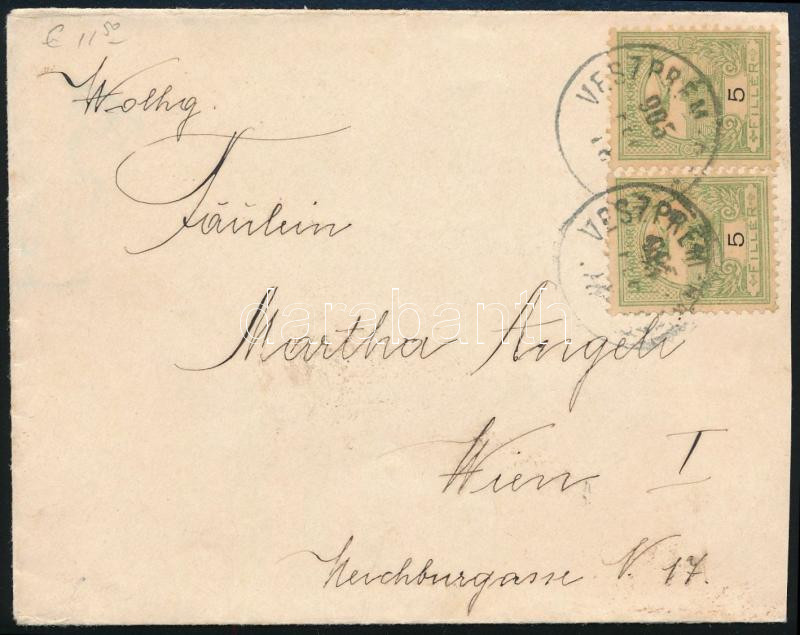 € 11⁵⁰
Wolhg.
Fäulein
Martha Angeli
Wien I
N. 17.
VESZPRÉM
905
5
FILLÉR
VESZPRÉM
5
FILLÉR
darabanth